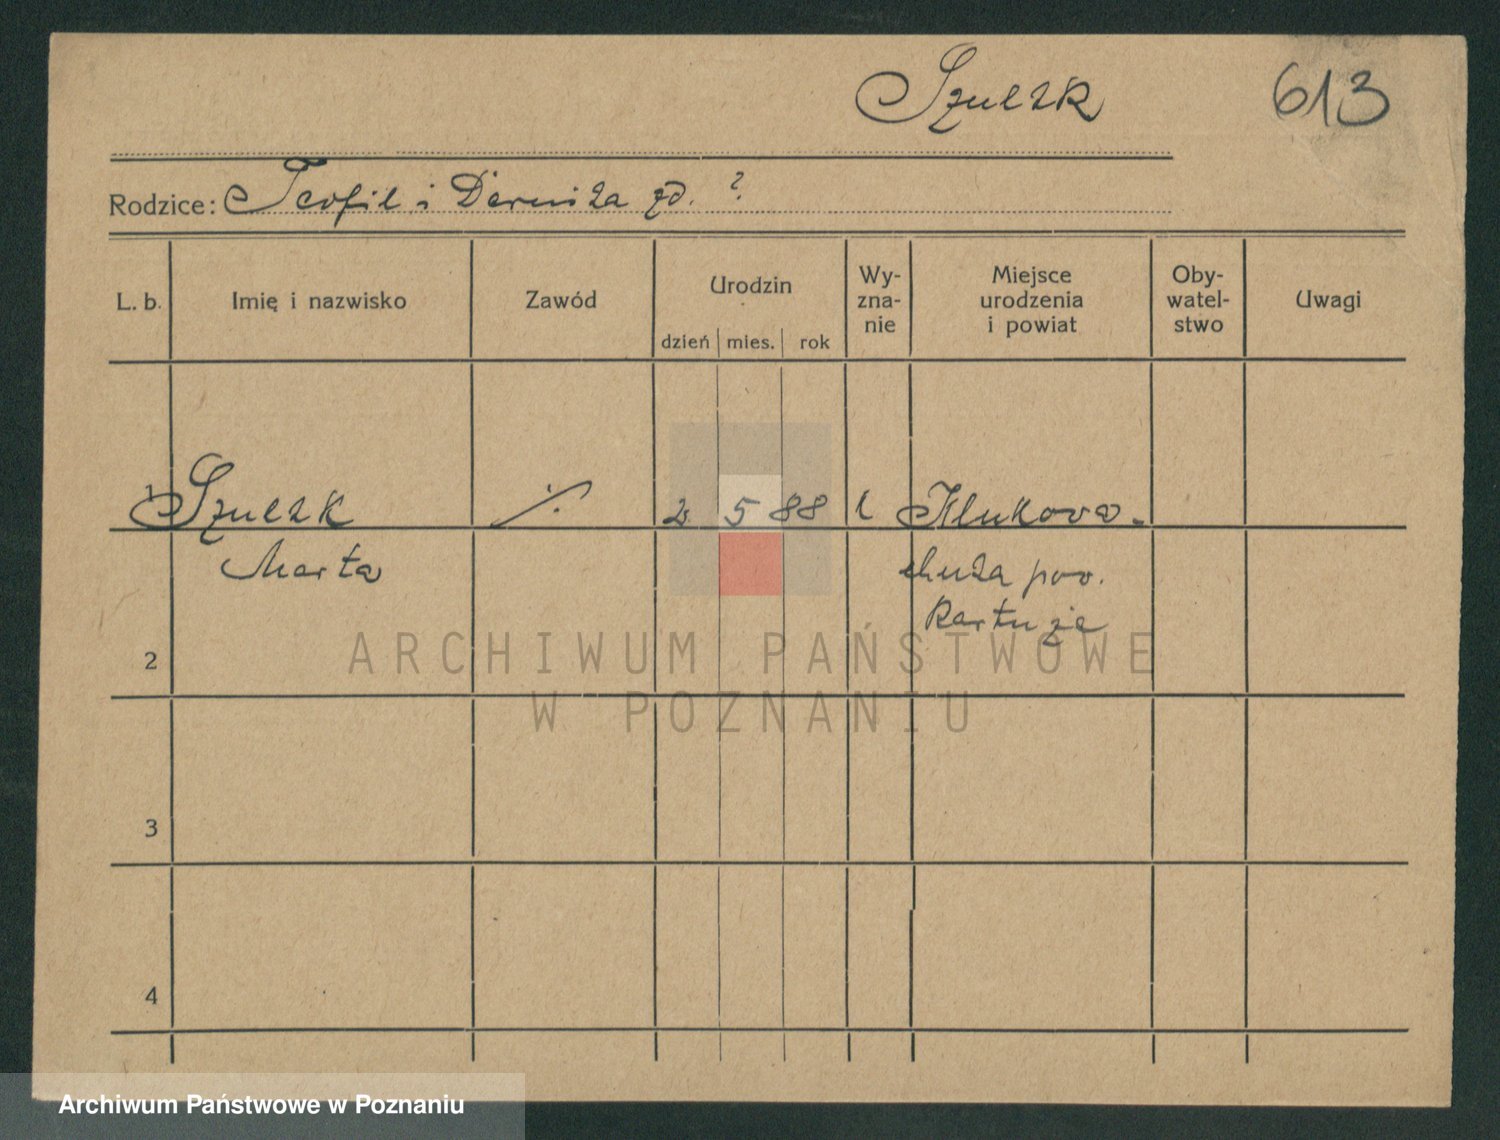 Szulzk 613
Rodzice: Teofil i
L. b. Imię i nazwisko Zawód Urodzin Wy- Miejsce Oby- Uwagi
zna- urodzenia watel-
nie i powiat stwo
dzień mies. rok
1 Szulzk ./. 2. 5 88 Klukowa-
Marta chuta pow.
Kartuzie
2
ARCHIWUM PAŃSTWOWE
W POZNANIU
3
4
Archiwum Państwowe w Poznaniu